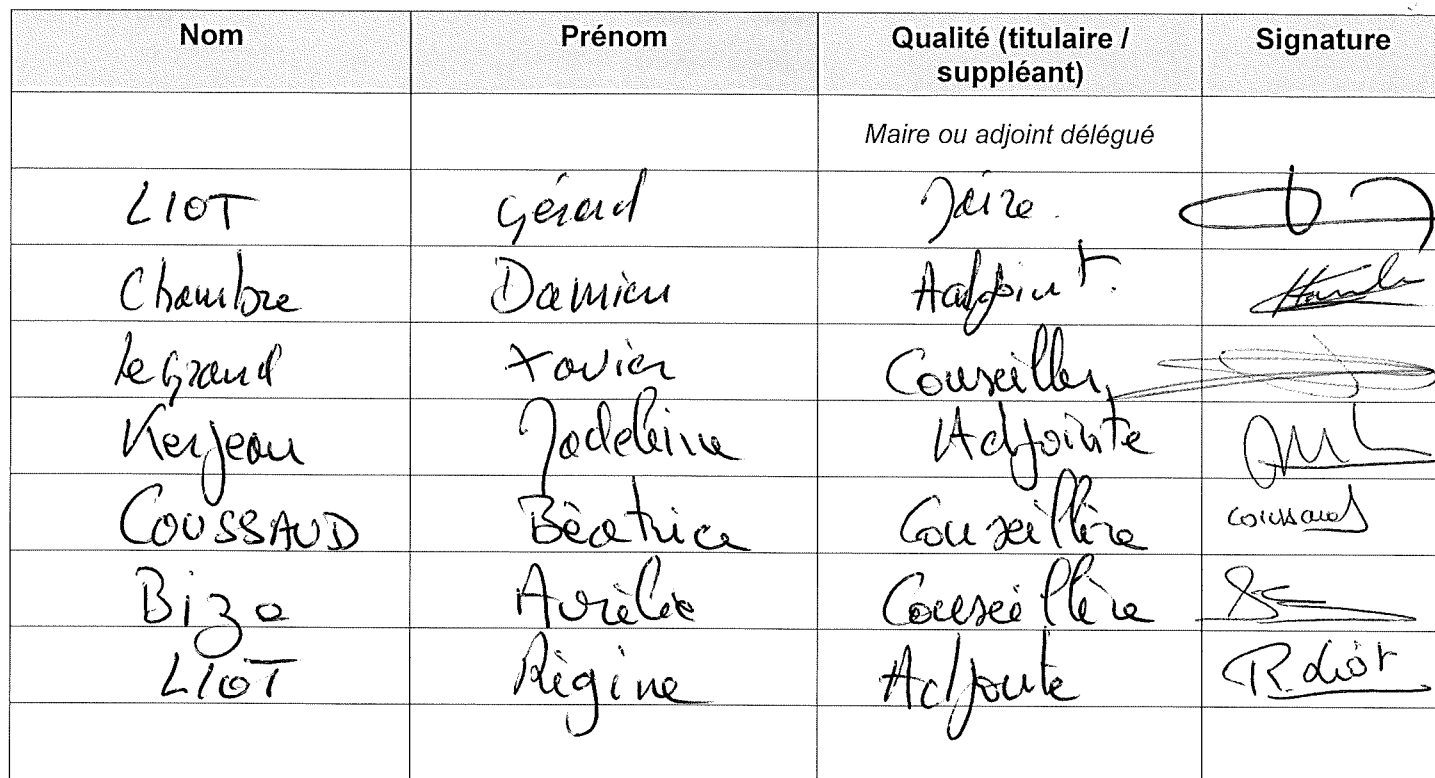 Nom Prénom Qualité (titulaire / suppléant) Signature
Maire ou adjoint délégué
LIOT Gérard Maire.
Chambre Damien Adjoint.
Le Grand Xavier Conseiller
Kerjean Madeleine Adjointe
COUSSAUD Béatrice Conseillère Coussaud
Biza Aurélie Conseillère
LIOT Régine Adjointe R. Liot